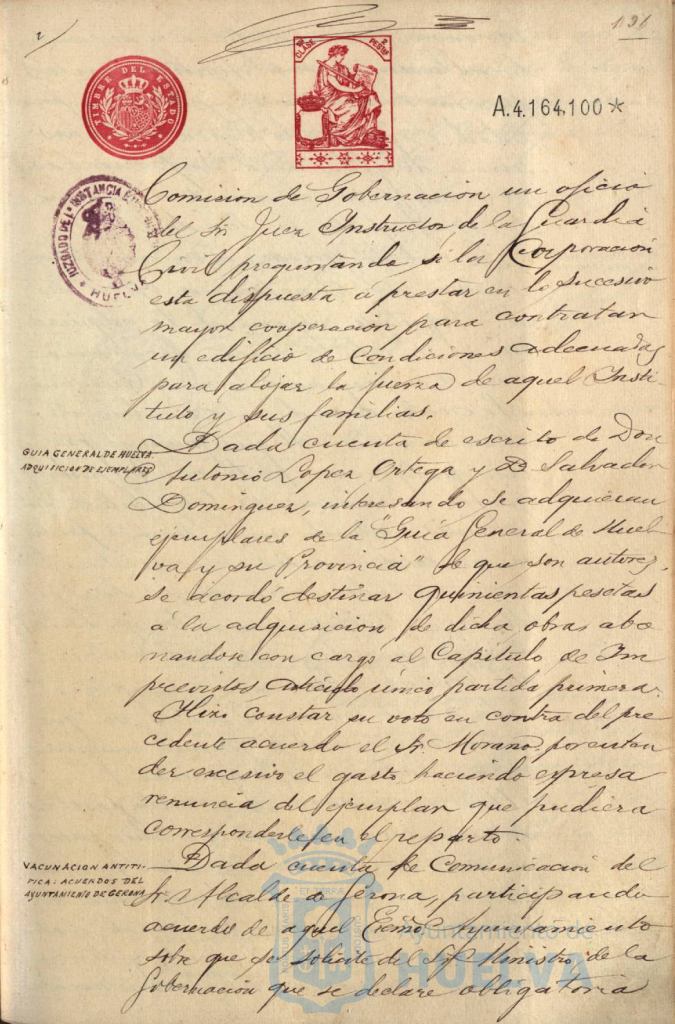 131
TIMBRE DEL ESTADO
CLASE
PESETAS
A.4.164.100*
JUZGADO DE 1ª INSTANCIA
HUELVA
Comision de Gobernacion un oficio
del Sr. Juez Instructor de la Guardia
Civil preguntando si la Corporación
esta dispuesta á prestar en lo sucesivo
mayor cooperacion para contratar
un edificio de Condiciones adecuadas
para alojar la fuerza de aquel Insti-
tuto y sus familias.
GUIA GENERAL DE HUELVA.
ADQUISICION DE EJEMPLARES
Dada cuenta de escrito de Don
Antonio Lopez Ortega y D. Salvador
Dominguez, interesando se adquieran
ejemplares de la "Guia General de Huel
va y su Provincia" de que son autores,
se acordó destinar quinientas pesetas
á la adquisicion de dicha obra abo
nandose con cargo al Capitulo de Im
previstos articulo único partida primera.
Hizo constar su voto en contra del pre
cedente acuerdo el Sr. Morano por enten
der excesivo el gasto haciendo expresa
renuncia del ejemplar que pudiera
corresponderle en el reparto.
VACUNACION ANTITI-
FICA: ACUERDOS DEL
AYUNTAMIENTO DE GERONA
Dada cuenta de Comunicación del
Sr. Alcalde de Gerona, participando
acuerdo de aquel Excmo. Ayuntamiento
sobre que se solicite del Sr. Ministro de la
Gobernacion que se declare obligatoria
Ayuntamiento de
HUELVA